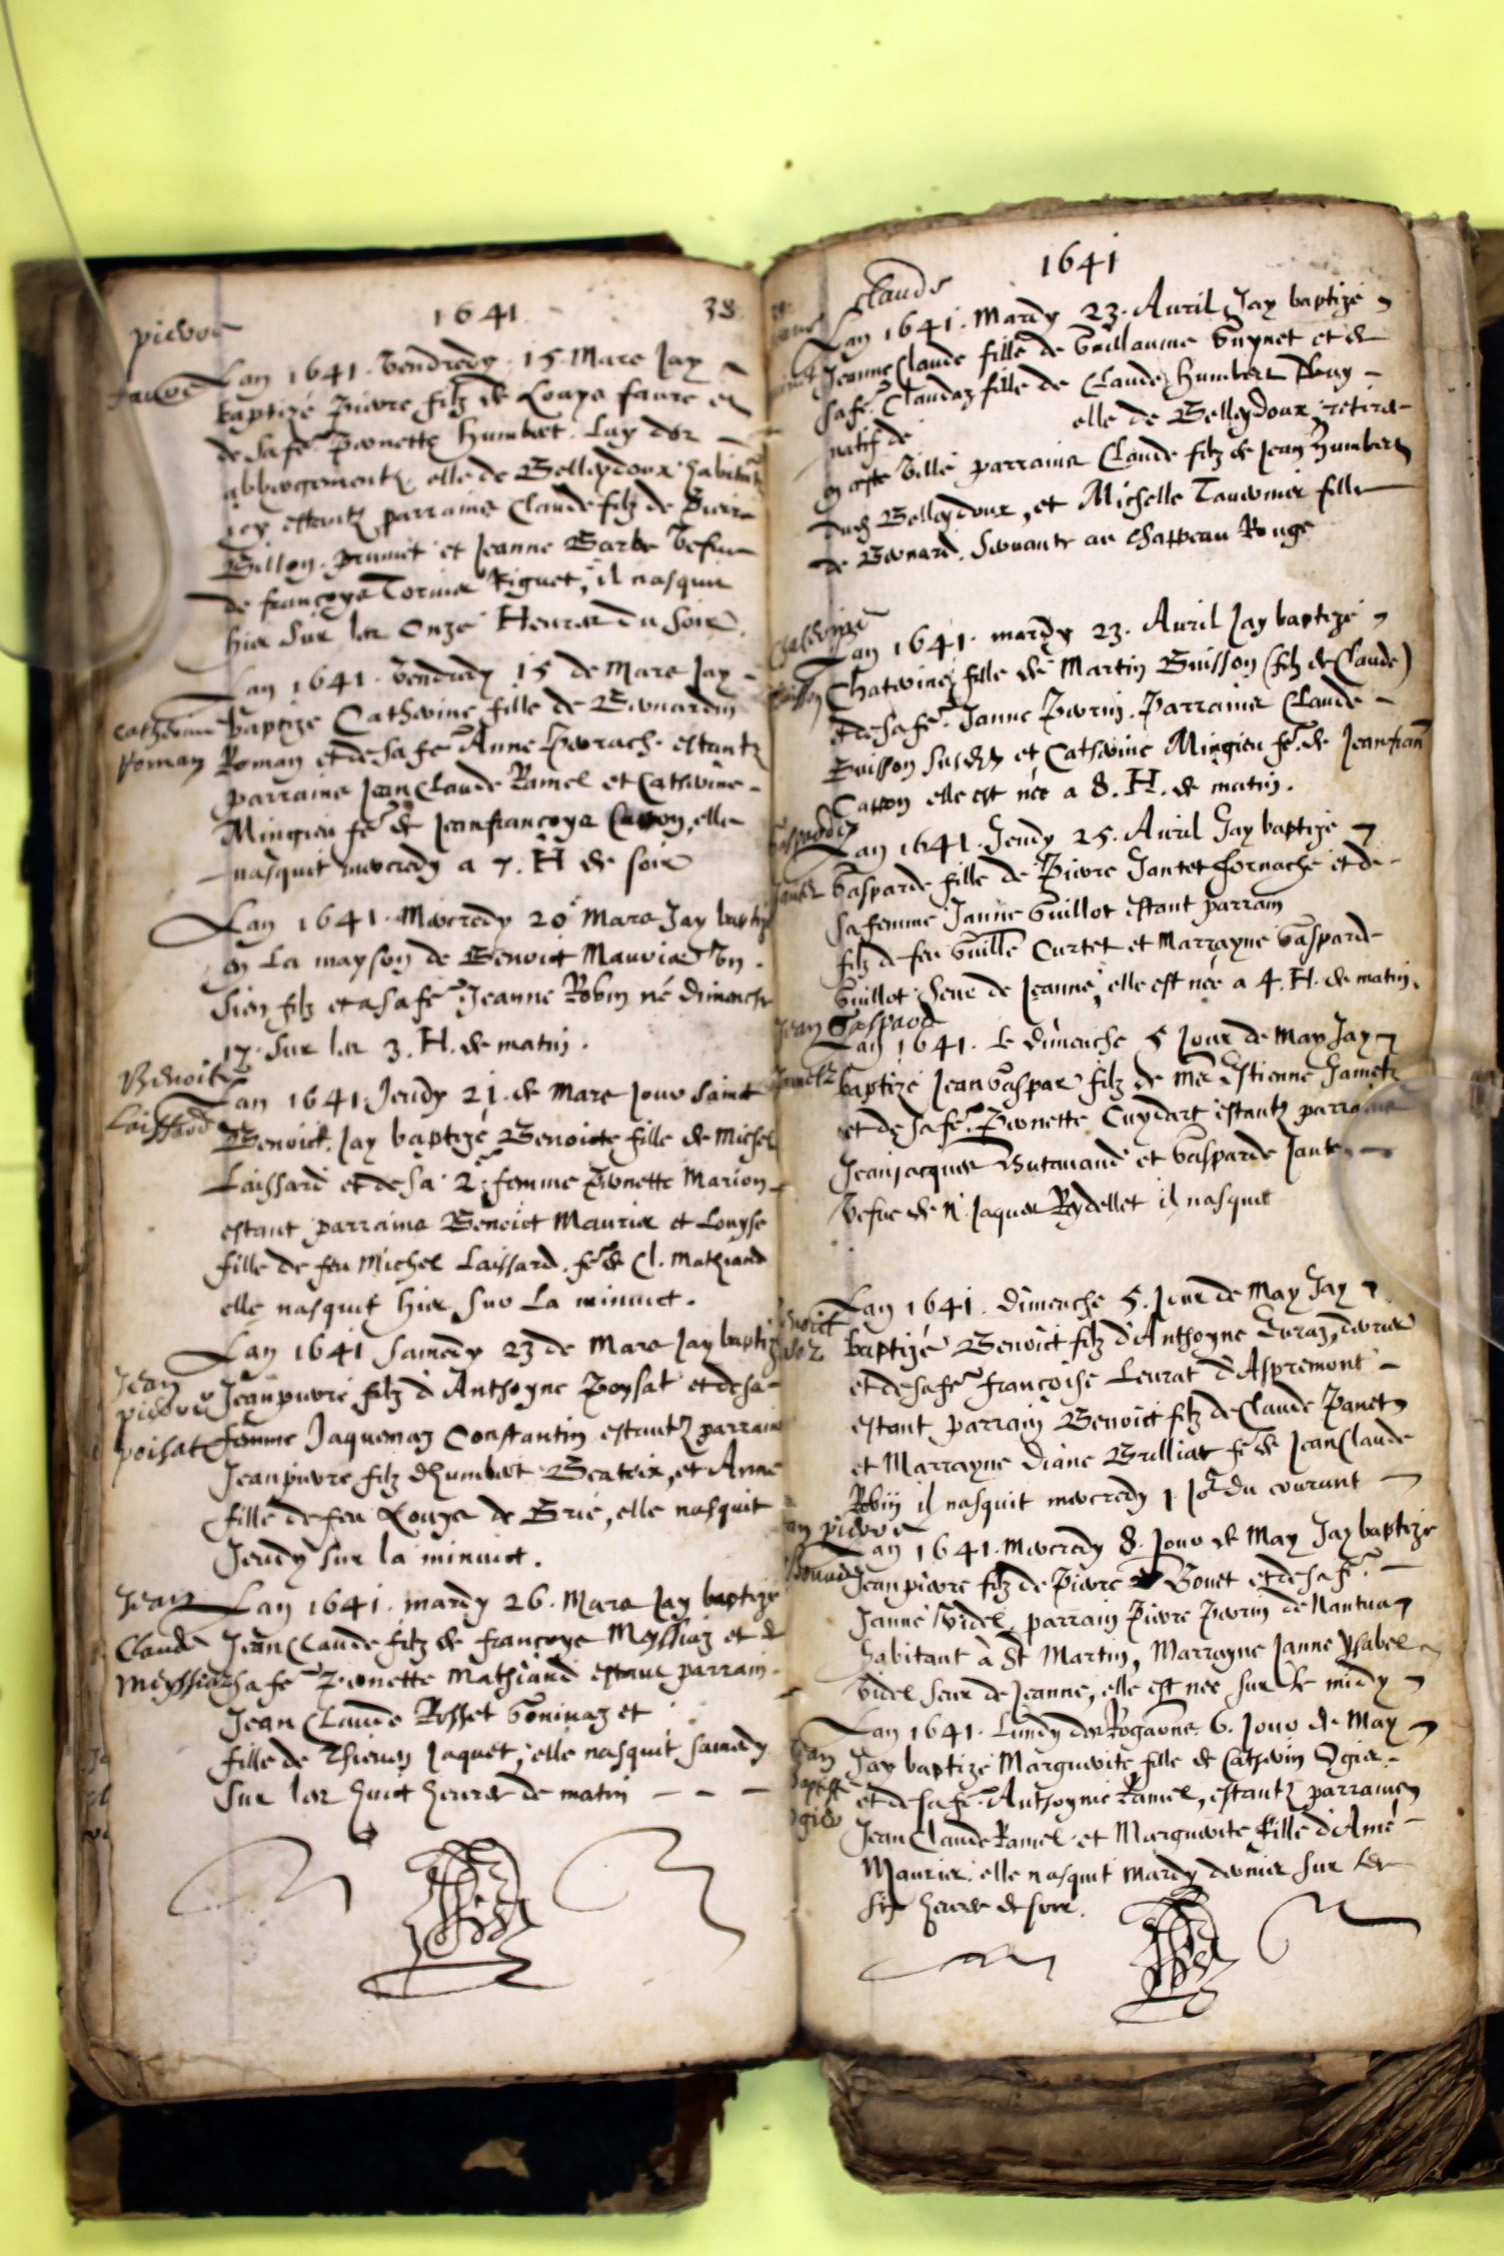 1641
38
pierre
faure
Lan 1641. Vendredy. 15. Mars Jay
baptizé Pierre filz de Louys faure et
de sa fe Pernette Humbert. Luy des
abbergementz. elle de Belleydoux habitantz
icy estantz parrains Claude filz de Pierre
Billon. et Jeanne Barbe vefue
de françoys Tornier Riguet, il nasquit
hier sur les Onze Heures du soir.
Lan 1641. Vendredy 15 de Mars Jay
Catherine
Roman
baptize Catherine fille de Bernardin
Roman et de sa fe Anne Perrache. estantz
parrains Jean Claude Ramel et Catherine
Mingieu fe de Jean françoys Carron, elle
nasquit mercredy a 7. H de soir
Lan 1641. Mercredy 20 Mars Jay baptizé
en La mayson de Benoict Maurier Un
sien filz et a sa fe Jeanne Robin né dimenche
17. sur les 3. H. de matin.
Benoiste
Laissard
Lan 1641 Jeudy 21. de Mars jour Sainct
Benoict. Jay baptizé Benoicte fille de Michel
Laissard et de sa 2e femme Pernette Marion
estant parrains Benoict Maurier et Louyse
fille de feu Michel Laissard. fe de Cl. Mathiand
elle nasquit hier sur La minuict.
Lan 1641 Samedy 23 de Mars Jay baptizé
Jean
pierre
poisat
Jean pierre filz d'Anthoyne Poysat et de sa
femme Jaquemaz Constantin estantz parrains
Jean pierre filz d'humbert Beatrix, et Anne
fille de feu Louys de Brie, elle nasquit
Jeudy sur la minuict.
Jean
Claude
Meyssiaz
Lan 1641. mardy 26. Mars Jay baptizé
Jean Claude filz de françoys Meyssiaz et de
sa fe Pernette Mathiand estant parrain
Jean Claude Rosset Goninaz et
fille de Thieuen Jaquet, elle nasquit samedy
sur les huict heures de matin - - -
1641
Claude
Lan 1641. Mardy 23. Auril Jay baptizé
Jeanne Claude fille de Guillaume Guynet et de
sa fe Claudaz fille de Claude Humbert Buy
natif de elle de Belleydoux retirés
en ceste Ville parrains Claude filz de Jean Humbert
dud Belleydoux, et Michelle Tauernier fille
de Bernard. Seruante au Chappeau Rouge
Catherine
Lan 1641. mardy 23. Auril Jay baptizé
Chaterine fille de Martin Buisson (filz de Claude)
et de sa fe. Janne Perrin. Parrains Claude
Buisson susdt et Catherine Mingieu fe. de Jean fran
Carron elle est née a 8. H. de matin.
Gasparde
Lan 1641. Jeudy 25. Auril Jay baptizé
Gasparde fille de Pierre Jantet fornache et de
sa femme Janne Guillot estant parrain
filz de feu Guille Curtet et Marrayne Gasparde
Guillot Seur de Jeanne, elle est née a 4. H. de matin.
Jean Gaspard
Jantet
Lan 1641. Le dimenche 5 Jour de May Jay
baptizé Jean Gaspar filz de Me Estienne Jantet
et de sa fe. Pernette Cuydart estantz parrains
Jean Jacques Butauand et Gasparde Jantet
Vefue de N. Jaques Reydellet il nasquit
Lan 1641. dimenche 5. Jour de May Jay
baptizé Benoict filz d'Anthoyne
et de sa fe françoise Leurat d'Aspremont
estant parrain Benoict filz de Claude Panet
et Marrayne Diane Brilliat fe de Jean Claude
Robin il nasquit mercredy 1 Jor du courant
Jean pierre
Bouuet
Lan 1641. Mercredy 8. Jour de May Jay baptizé
Jean pierre filz de Pierre Bouet et de sa fe.
Janne Videl, parrain Pierre Perrin de Nantua
habitant à St Martin, Marrayne Janne Ysabel
Videl Seur de Jeanne, elle est née sur le midy
Lan 1641. Lundy des Rogaons. 6. Jour de May
Jean
Baptiste
Ogier
Jay baptizé Marguerite fille de Catherin Ogier
et de sa fe. Anthoynie Ramel, estantz parraines
Jean Claude Ramel. et Marguerite fille d'Amé
Maurier. elle nasquit mardy dernier sur les
six heures de soir.